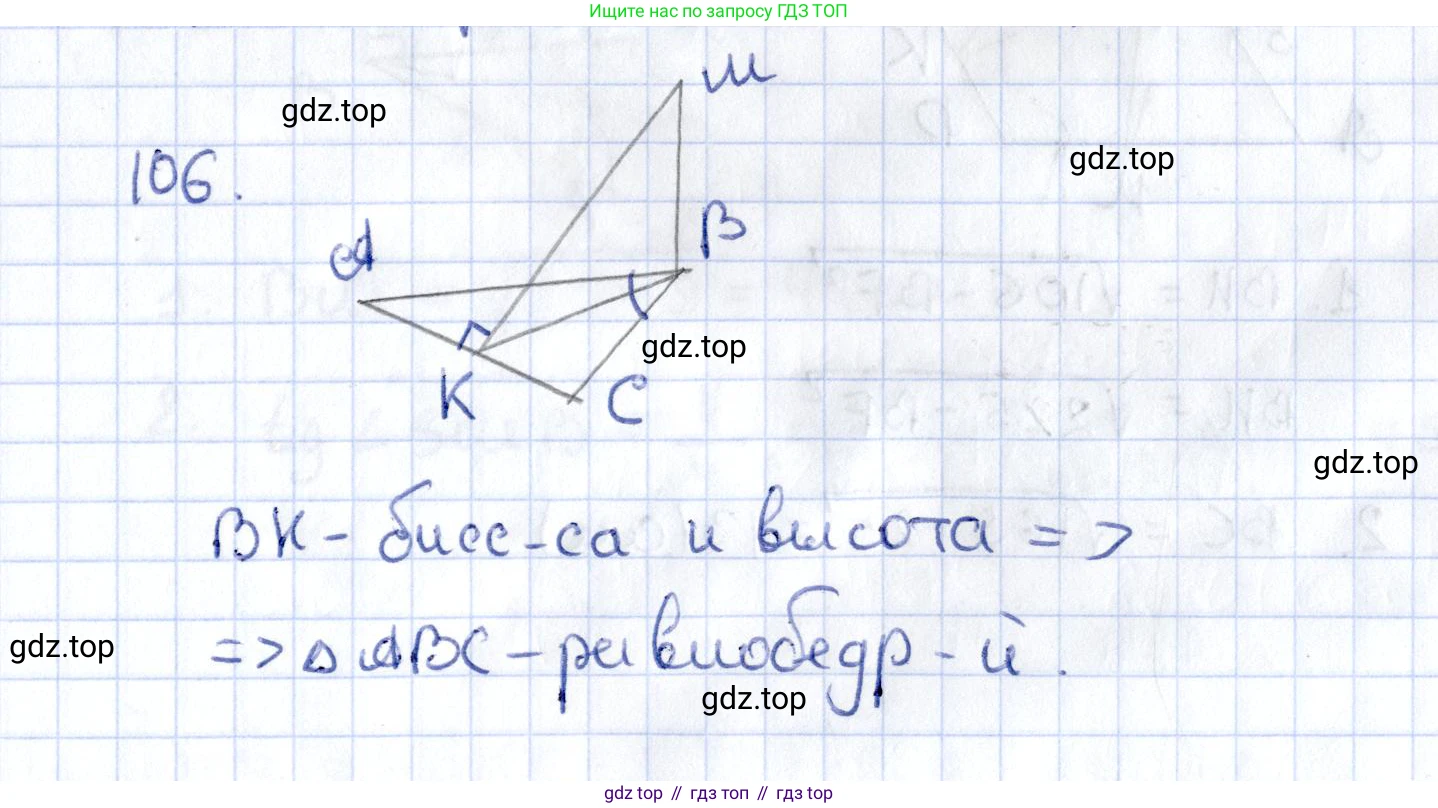 Ищите нас по запросу ГДЗ ТОП
M
gdz.top
106.
gdz.top
A
B
gdz.top
K
C
gdz.top
BK - бисс-са и высота =>
=> △ ABC - равнобедр - й.
gdz.top
gdz.top
gdz top // гдз топ // гдз top